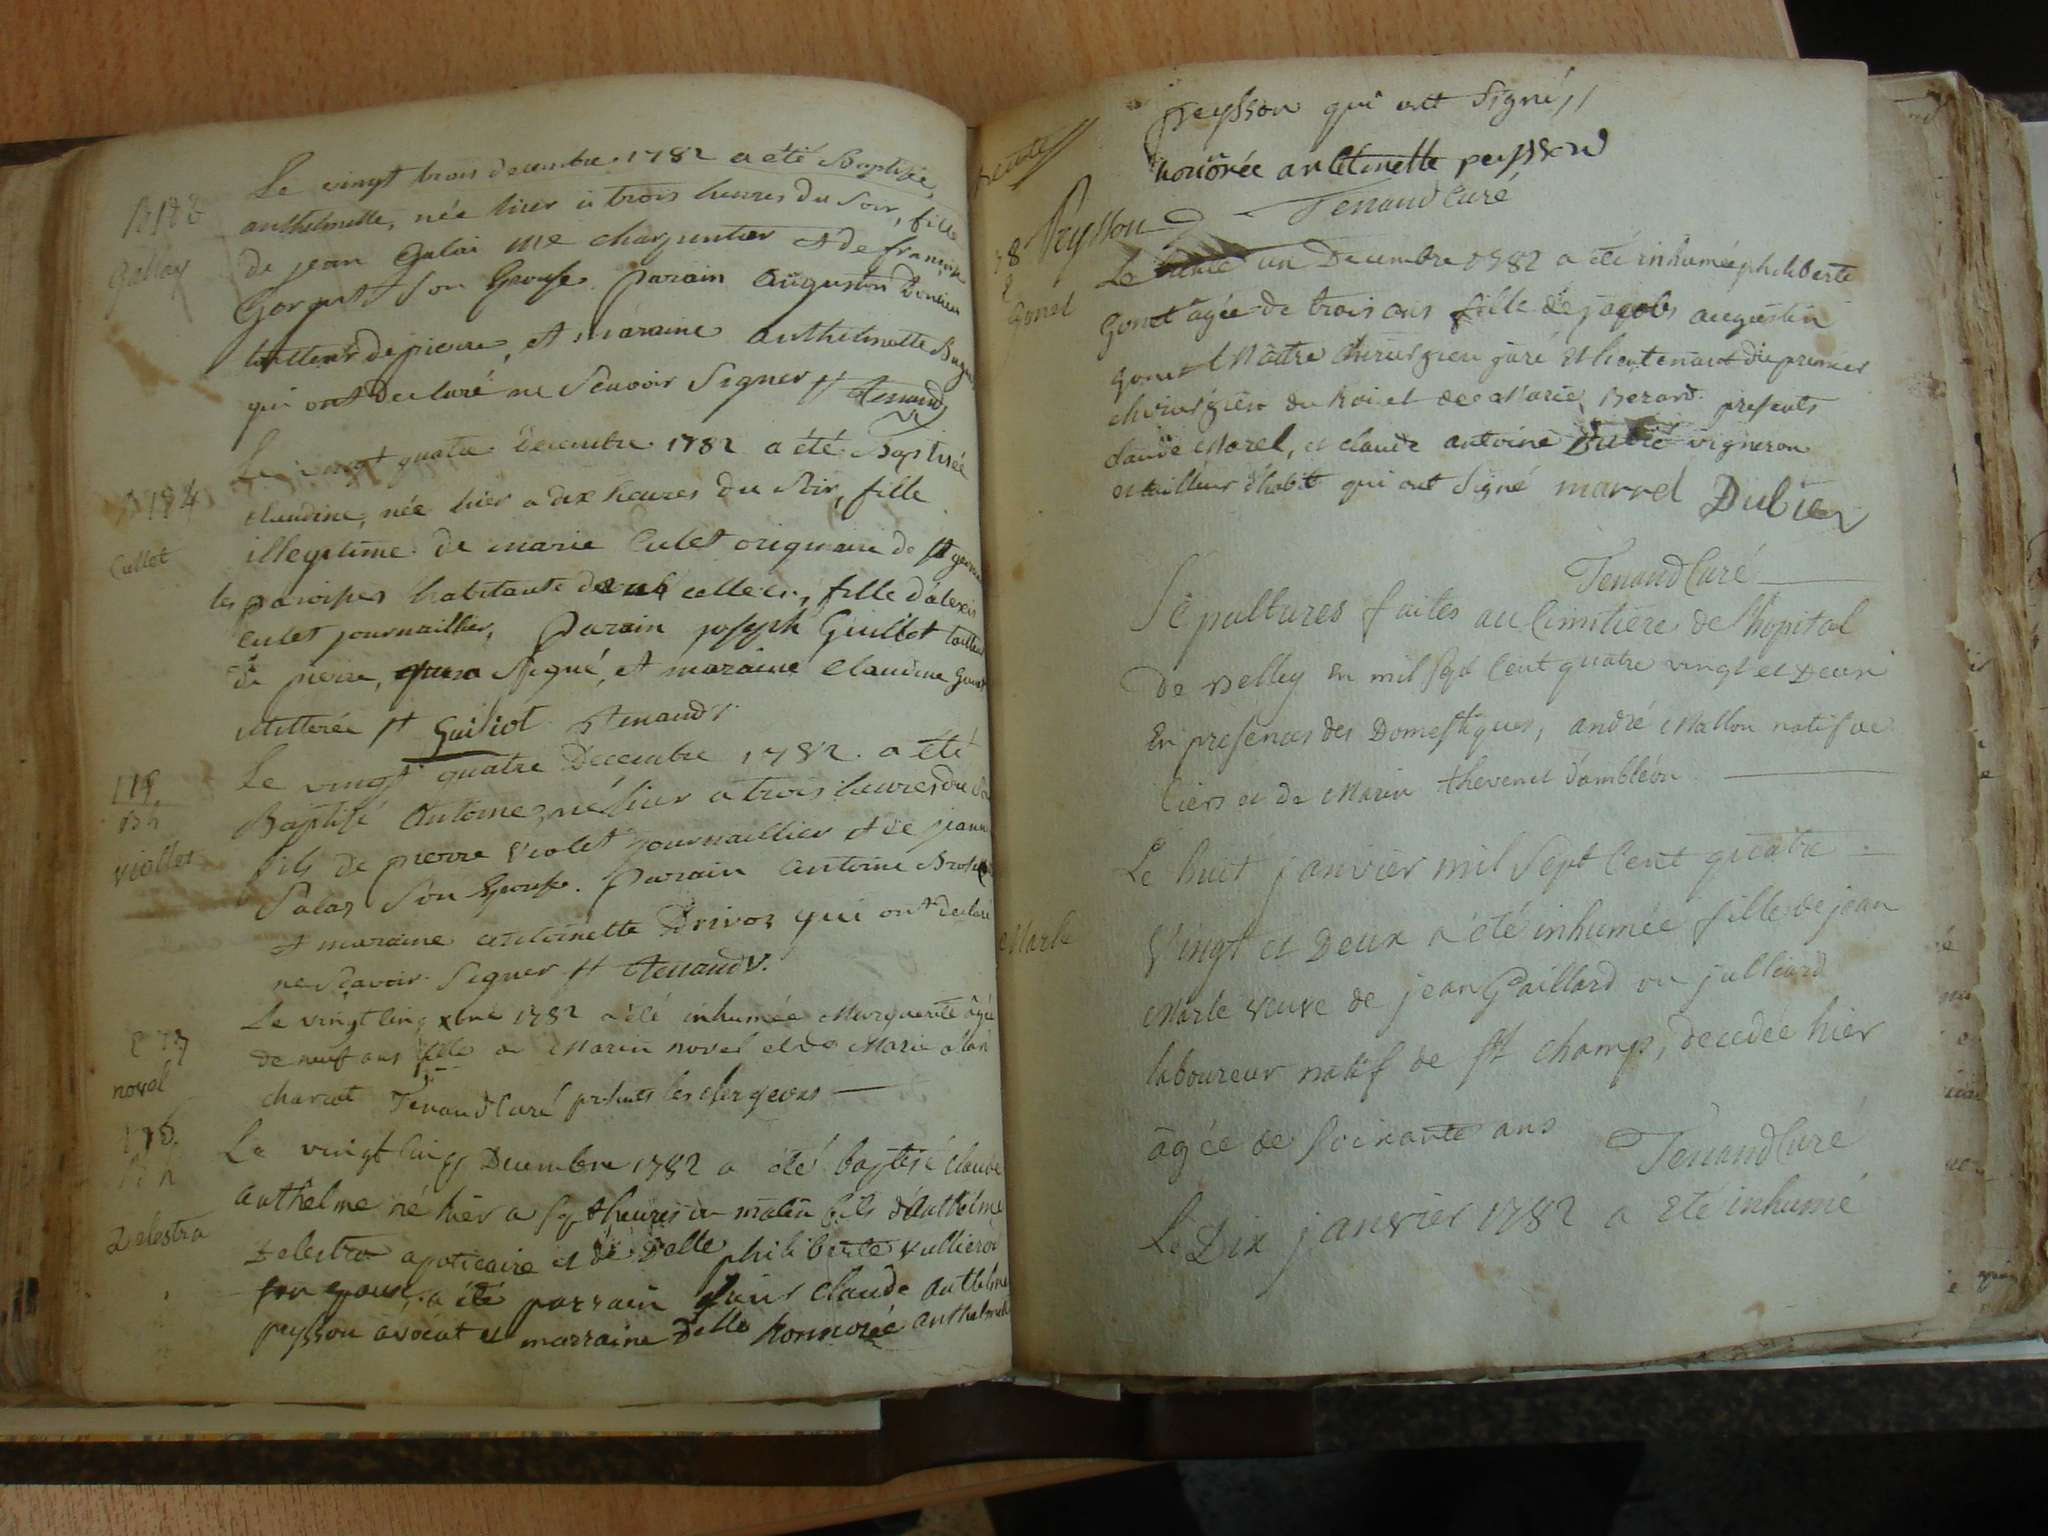 Le vingt trois decembre 1782 a été Baptisée
anthelmette, née hier à trois heures du Soir, fille
de jean Galai me charpentier et de françoise
son Epouse. parain augustin
tailleur de pierre, et maraine anthelmette
qui ont declaré ne Scavoir Signer // Tenand
Galley
Le vingt quatre decembre 1782 a été Baptisée
claudine, née hier a dix heures du Soir, fille
illegitime de marie Culet originaire de st
les paroisses habitante de celle ci, fille d'alexis
culet journaillier, Parain joseph Guillot tailleur
de pierre, qui a Signé, et maraine Claudine
illitterée // Guiliot Tenand
B 184
Cullet
Le vingt quatre Decembre 1782 a été
Baptisé Antoine, né hier a trois heures du
fils de pierre Violet journaillier et de jeanne
Salaz Son Epouse. Parain antoine
et maraine antoinette Brivoz qui ont declaré
ne Scavoir Signer // Tenand
viollet
Le vingt cinq xbre 1782 a été inhumée Marguerite âgée
de neuf ans fille de Marin novel et de Marie
charcot Tenand Curé présents les clergeons
novel
Le vingt cinq Decembre 1782 a été baptisé claude
anthelme né hier a sept heures du matin fils d'anthelme
Delestra apoticaire et de Delle philiberte vullierod
son epouse, a été parrain Sieur claude anthelme
peysson avocat et marraine delle honnorée anthelmette
Delestra
peysson qui ont Signé //
honorée antelmette peysson
Tenand Curé
Peysson
Le trente un Decembre 1782 a été inhumée philiberte
Gonet agée de trois ans fille de jaques augustin
gonet Maitre chirurgien juré et lieutenant du premier
chirurgien du Roi et de Marie Berard. presents
claude Marel, et claude antoine Dubié vigneron
et tailleur d'habit qui ont Signé marrel Dubier
Gonet
Tenand Curé
Sépultures faites au Cimitiere de l'hopital
de Belley en mil sept Cent quatre vingt et Deux
en presences des Domestiques, andré Mallon natif de
Ciers et de Marin thevenet d'ambléon
Le huit janvier mil Sept Cent quatre
Vingt et Deux a été inhumée fille de jean
Marle veuve de jean Gaillard ou julliard
laboureur natif de st champ, decedée hier
âgée de soixante ans
Tenand Curé
Marle
Le Dix janvier 1782 a été inhumé